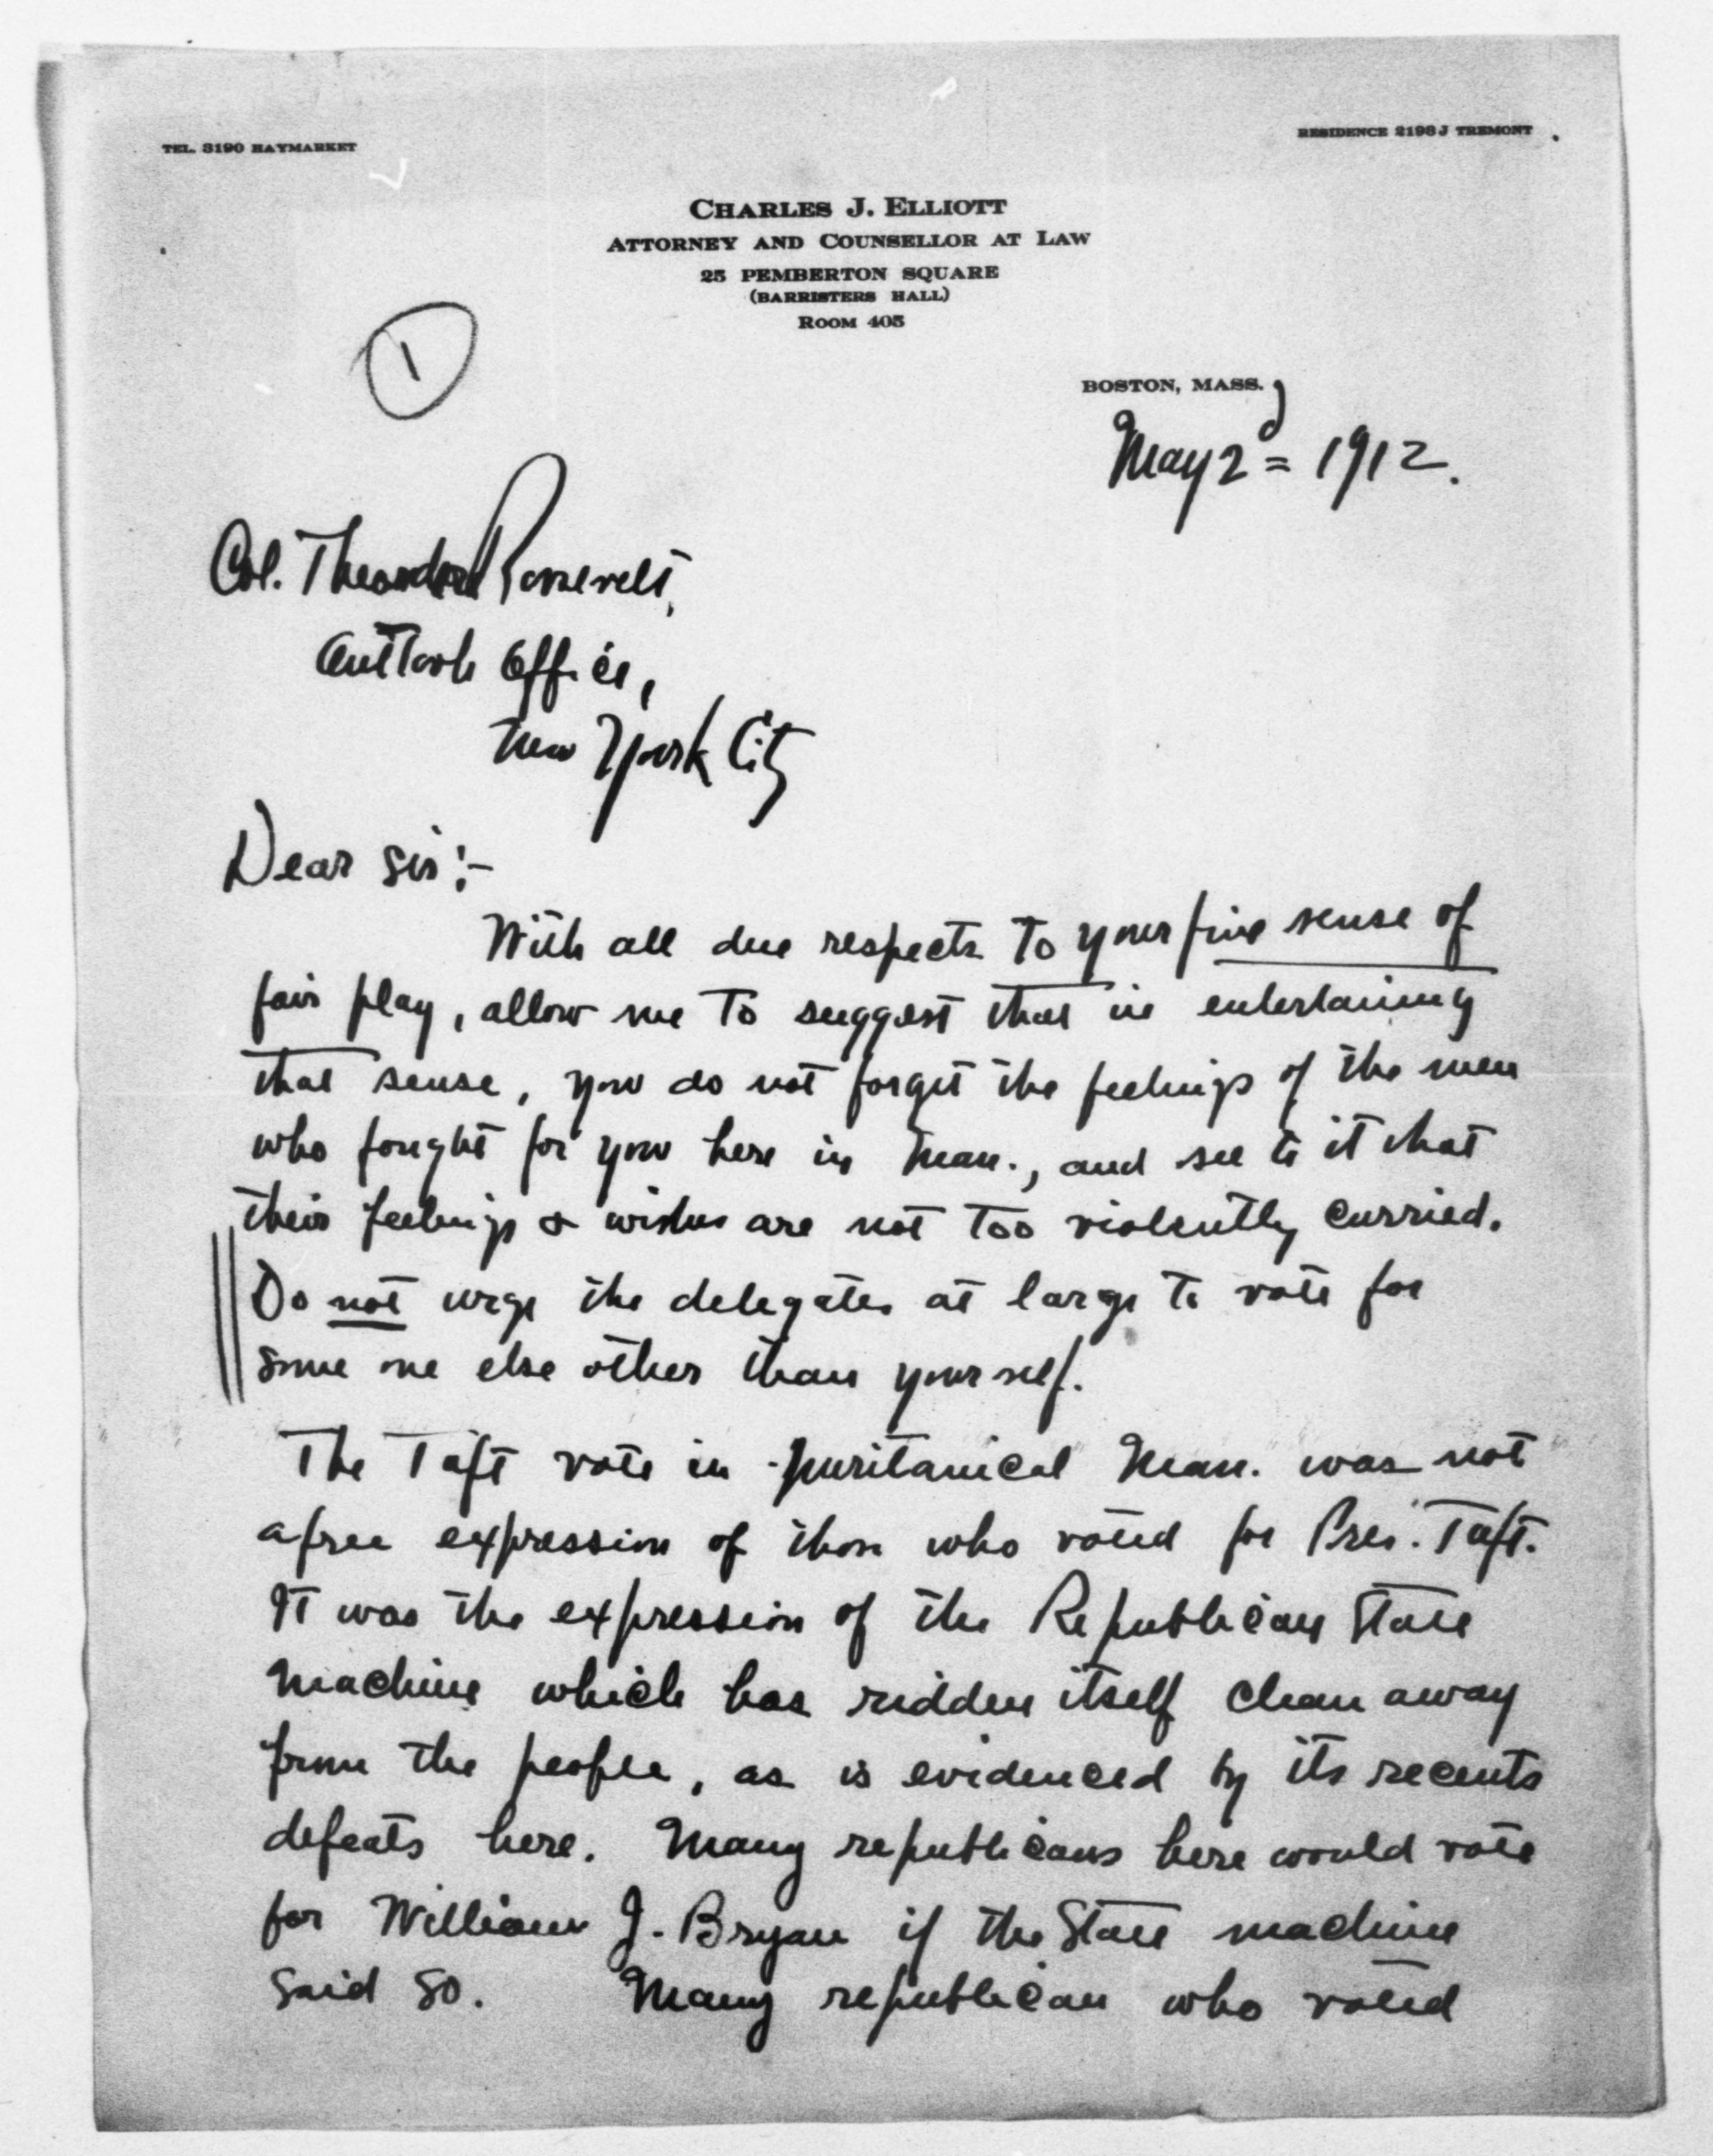 TEL. 3190 HAYMARKET
RESIDENCE 2198J TREMONT
CHARLES J. ELLIOTT
ATTORNEY AND COUNSELLOR AT LAW
25 PEMBERTON SQUARE
(BARRISTERS HALL)
ROOM 405
1
BOSTON, MASS.,
May 2d 1912.
Col. Theodore Roosevelt,
Outlook Office,
New York City
Dear Sir:-
With all due respects to your fine sense of
fair play, allow me to suggest that in entertaining
that sense, you do not forget the feelings of the men
who fought for you here in Mass., and see to it that
their feelings & wishes are not too violently curried.
Do not urge the delegates at large to vote for
some one else other than yourself.
The Taft vote in puritanical Mass. was not
a free expression of those who voted for Pres. Taft.
It was the expression of the Republican State
Machine which has ridden itself clean away
from the people, as is evidenced by its recents
defeats here. Many republicans here would vote
for William J. Bryan if the State machine
said so. Many republican who voted